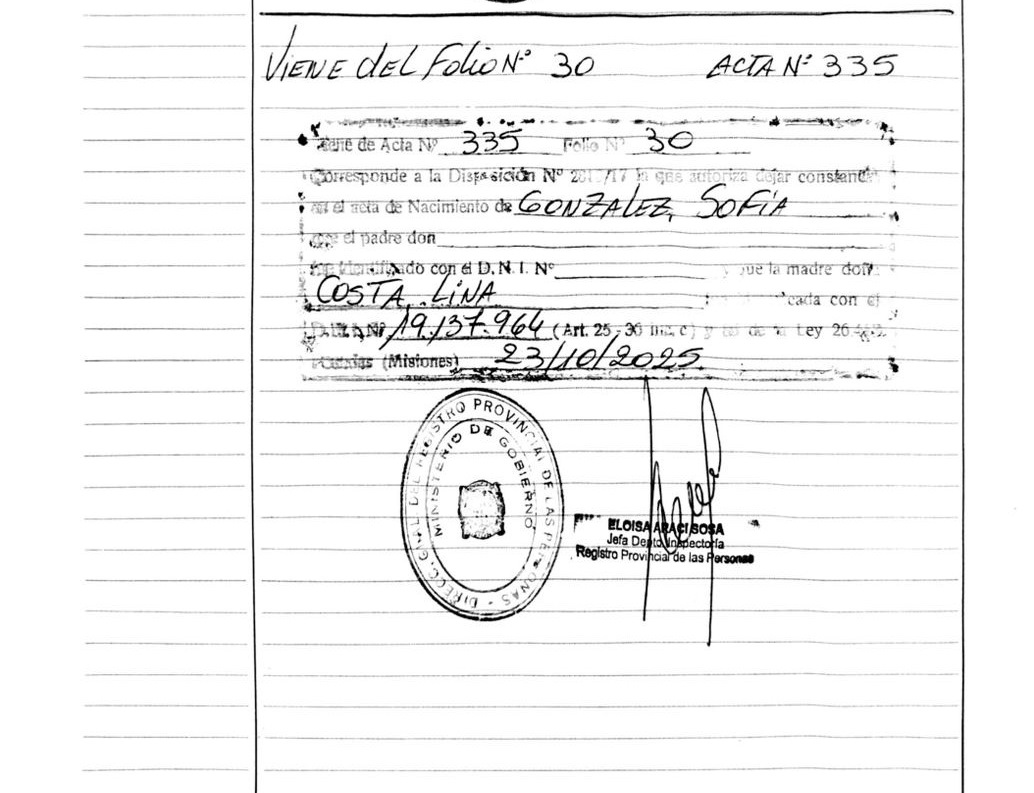 VIENE DEL FOLIO Nº 30 ACTA Nº 335
Viene de Acta Nº 335 Folio Nº 30
Corresponde a la Disposición Nº /17 la que autoriza dejar constancia
en el acta de Nacimiento de GONZALEZ, SOFÍA
que el padre don
fue identificado con el D.N.I. Nº y que la madre doña
COSTA, LINA cada con el
D.N.I. Nº 19.137.964 (Art. 25 - 36 inc. c) y de la Ley
Posadas (Misiones) 23/10/2025.
DIRECC. GRAL DEL REGISTRO PROVINCIAL DE LAS PERSONAS -
MINISTERIO DE GOBIERNO
ELOISA ARACI SOSA
Jefa Depto Inspectoría
Registro Provincial de las Personas